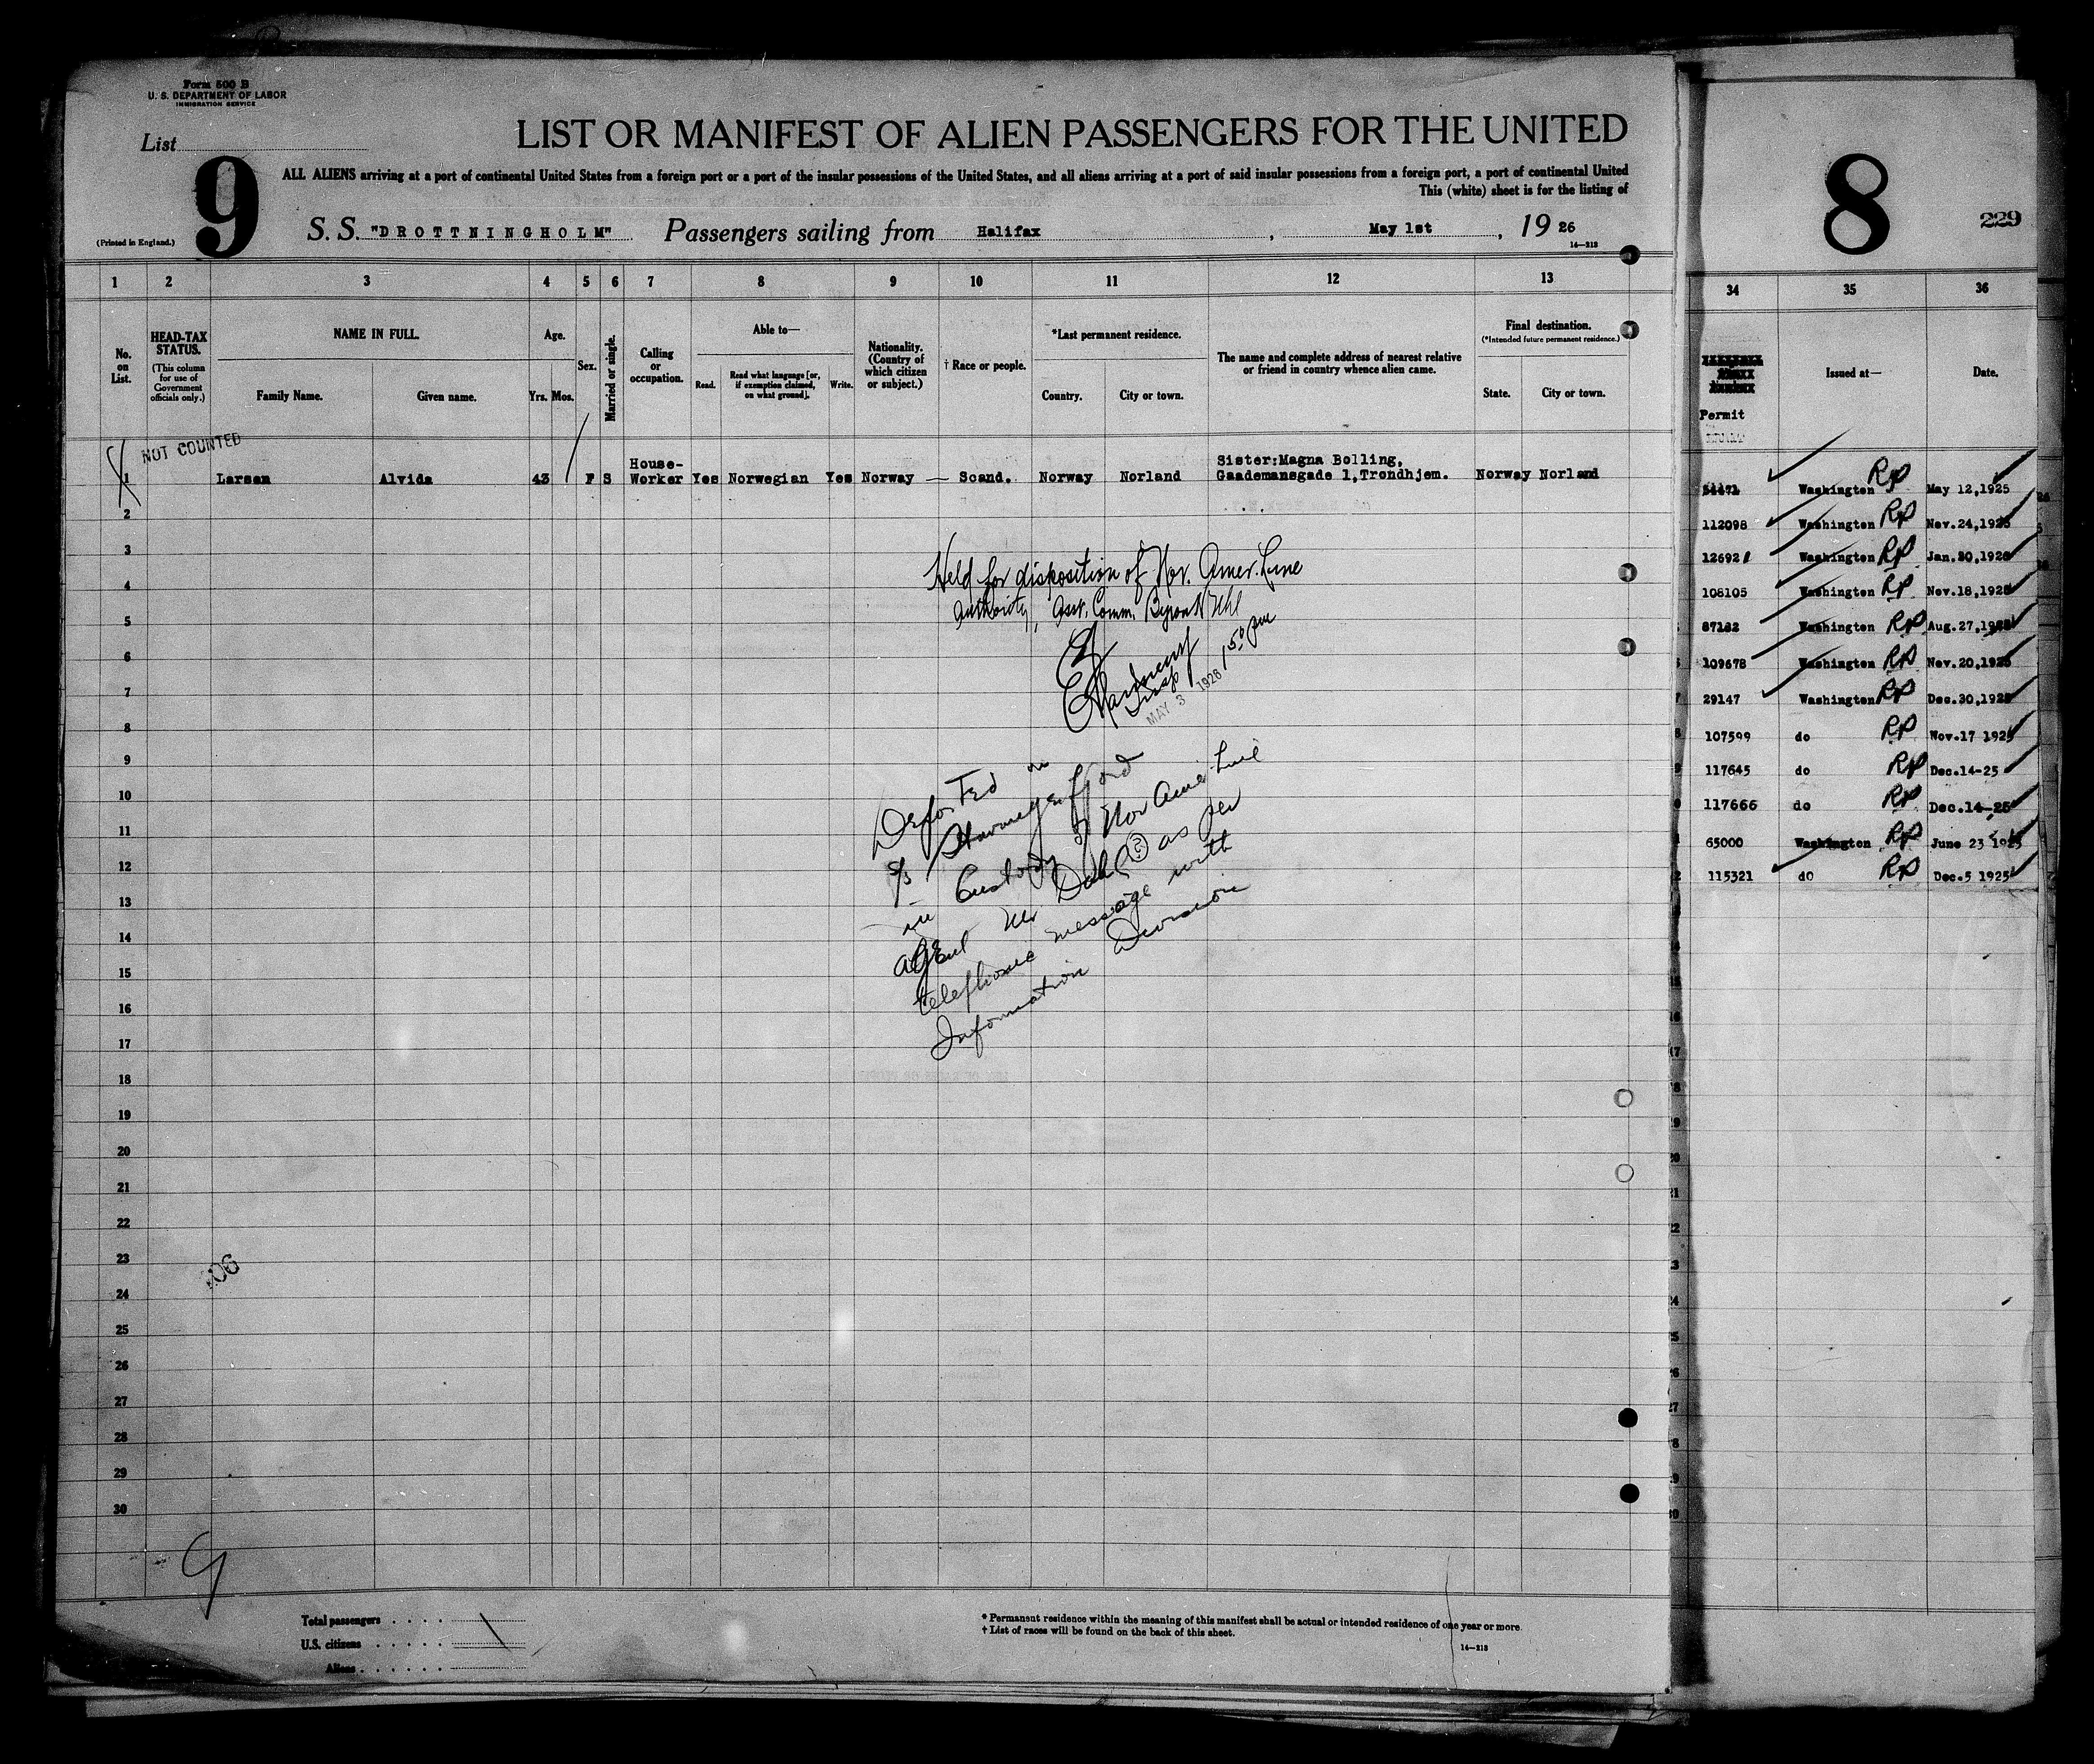 Form 500 B
U. S. DEPARTMENT OF LABOR
IMMIGRATION SERVICE
List
9
(Printed in England.)
LIST OR MANIFEST OF ALIEN PASSENGERS FOR THE UNITED
ALL ALIENS arriving at a port of continental United States from a foreign port or a port of the insular possessions of the United States, and all aliens arriving at a port of said insular possessions from a foreign port, a port of continental United
This (white) sheet is for the listing of
S. S. "DROTTNINGHOLM" Passengers sailing from Halifax, May 1st, 19 26
14—213
1 2 3 4 5 6 7 8 9 10 11 12 13
No. on List.
HEAD-TAX STATUS.
(This column for use of Government officials only.)
NAME IN FULL.
Family Name. Given name.
Age.
Yrs. Mos.
Sex.
Married or single.
Calling or occupation.
Able to—
Read. Read what language [or, if exemption claimed, on what ground]. Write.
Nationality. (Country of which citizen or subject.)
† Race or people.
*Last permanent residence.
Country. City or town.
The name and complete address of nearest relative or friend in country whence alien came.
Final destination.
(*Intended future permanent residence.)
State. City or town.
NOT COUNTED
1 Larsen Alvida 43 F S House-Worker Yes Norwegian Yes Norway — Scand. Norway Norland Sister:Magna Bolling, Gaademansgade 1,Trondhjem. Norway Norland
2
3
4
5
6
7
8
9
10
11
12
13
14
15
16
17
18
19
20
21
22
23
24
25
26
27
28
29
30
Held for disposition of Nor. Amer. Line
Authority, Asst. Comm. Byron H Uhl
Insp
MAY 3 1926 1 50 pm
Deported on
S/S Stavangerfjord
in Custody of Nor Ame Line
agent Mr Dahl (?) as per
telephone message with
Information Division
9
Total passengers
U.S. citizens
Aliens
* Permanent residence within the meaning of this manifest shall be actual or intended residence of one year or more.
† List of races will be found on the back of this sheet.
14—213
8
229
34 35 36
Permit
Issued at—
Date.
Washington RP May 12,1925
112098 Washington RP Nov.24,1925
12692 Washington RP Jan.20,1926
108105 Washington RP Nov.18,1925
87182 Washington RP Aug.27,1925
109678 Washington RP Nov.20,1925
29147 Washington RP Dec.30,1925
107599 do RP Nov.17 1925
117645 do RP Dec.14-25
117666 do RP Dec.14-25
65000 Washington RP June 23 1925
115321 do RP Dec.5 1925